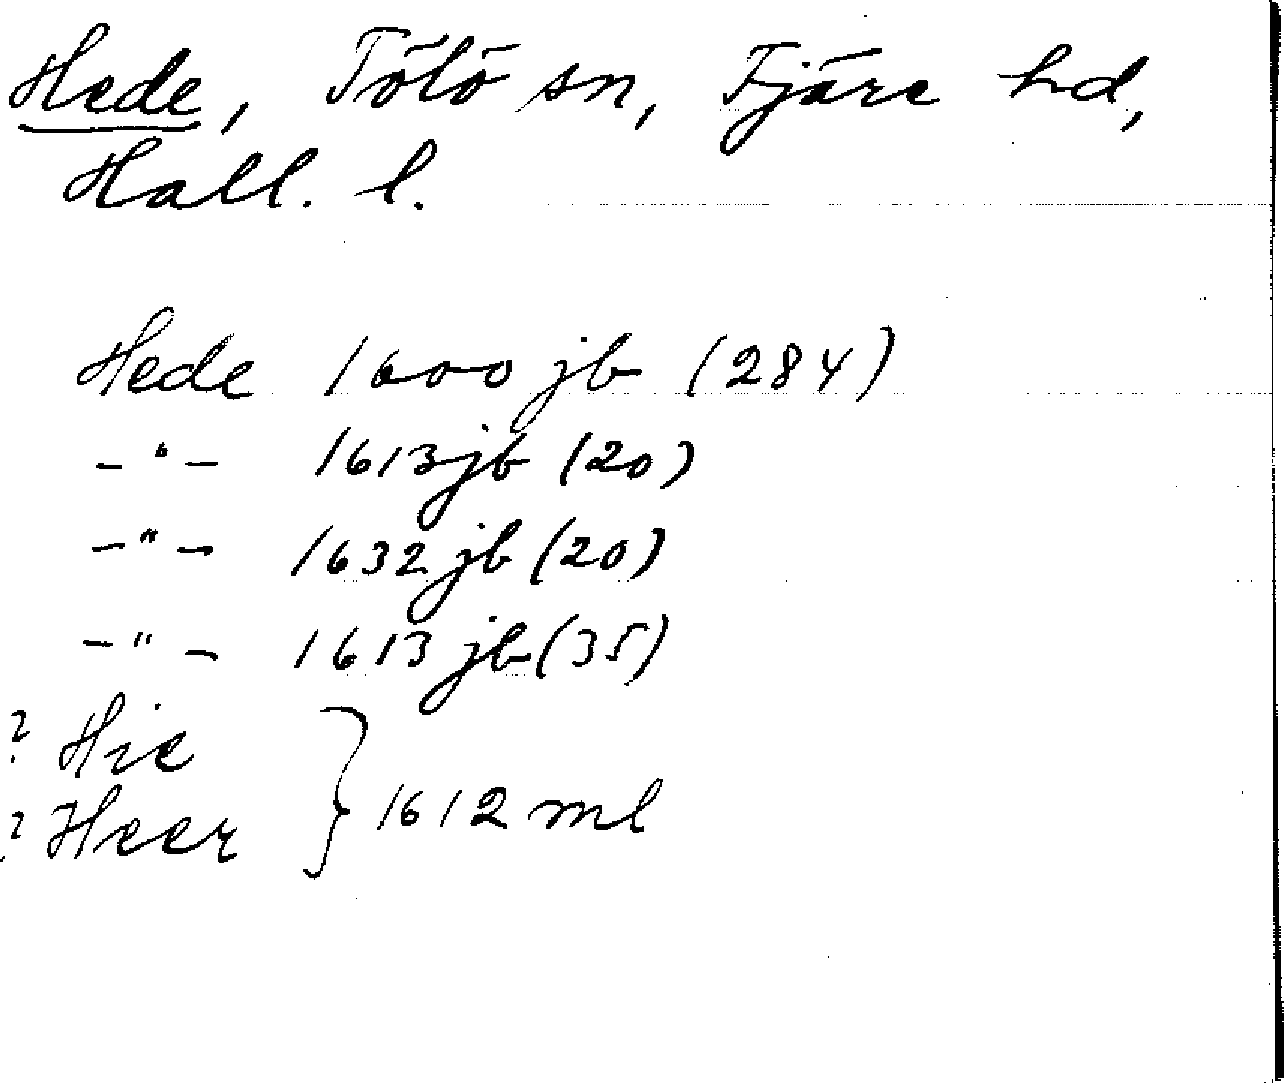 Hede, Tölö sn, Fjäre hd,
Hall. l.
Hede 1600 jb (284)
-"- 1613 jb (20)
-"- 1632 jb (20)
-"- 1613 jb (35)
? Hie
? Heer } 1612 ml